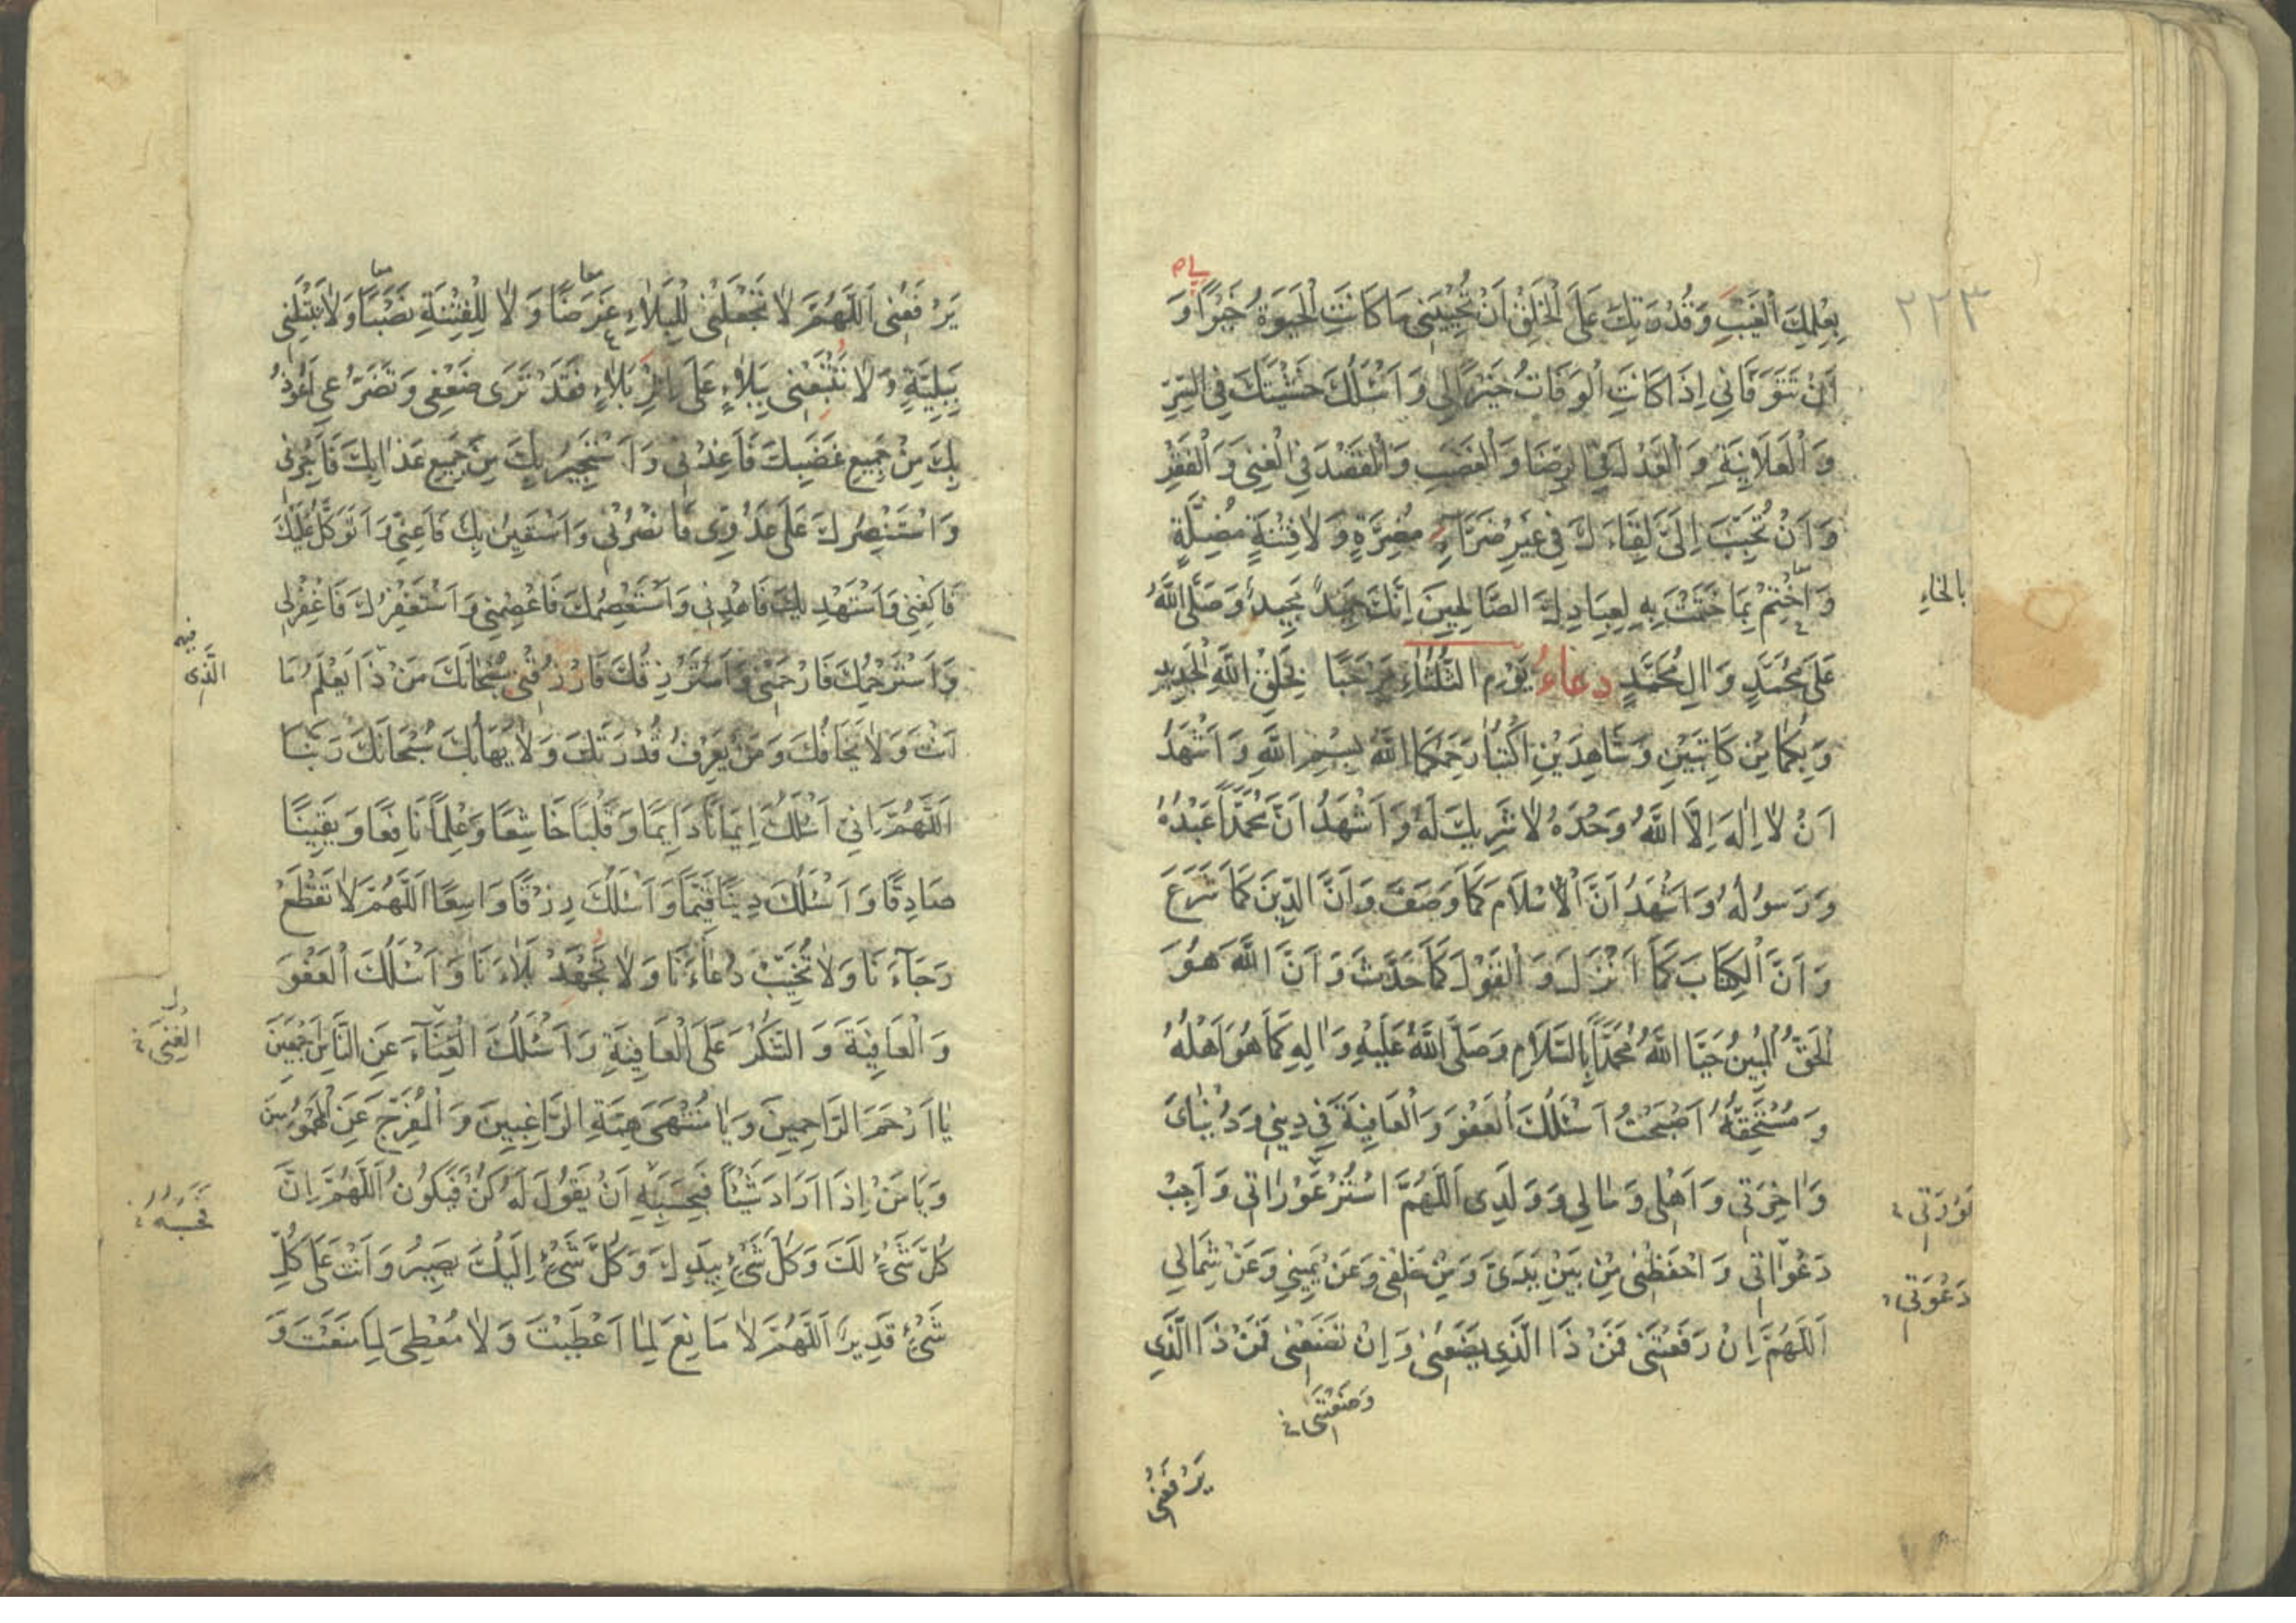 ٢٢٣
بِعِلْمِكَ الْغَيْبِ وَقُدْرَتِكَ عَلَى الْخَلْقِ اَنْ تُحْيِيَنِي مَا كَانَتِ الْحَيٰوةُ خَيْرًا وَ
اَنْ تَتَوَفَّانِي اِذَا كَانَتِ الْوَفَاتُ خَيْرًا لِي وَ اَسْئَلُكَ خَشْيَتَكَ فِي السِّرِّ
وَ الْعَلَانِيَةِ وَ الْعَدْلَ فِي الرِّضَا وَ الْغَضَبِ وَ الْقَصْدَ فِي الْغِنٰى وَ الْفَقْرِ
وَ اَنْ تُحَبِّبَ اِلَيَّ لِقَاءَكَ فِي غَيْرِ ضَرَّاءٍ مُضِرَّةٍ وَلَا فِتْنَةٍ مُضِلَّةٍ
وَ اخْتِمْ بِمَا خَتَمْتَ بِهِ لِعِبَادِكَ الصَّالِحِينَ اِنَّكَ حَمِيدٌ مَجِيدٌ وَصَلَّى اللّٰهُ
بالخاءِ
عَلٰى مُحَمَّدٍ وَ اٰلِ مُحَمَّدٍ دعاءُ يَوْمِ الثُّلٰثَاءِ مَرْحَبًا بِخَلْقِ اللّٰهِ الْجَدِيدِ
وَ بِكُمَا مِنْ كَاتِبَيْنِ وَ شَاهِدَيْنِ اُكْتُبَا رَحِمَكُمَا اللّٰهُ بِسْمِ اللّٰهِ وَ اَشْهَدُ
اَنْ لَا اِلٰهَ اِلَّا اللّٰهُ وَحْدَهُ لَا شَرِيكَ لَهُ وَ اَشْهَدُ اَنَّ مُحَمَّدًا عَبْدُهُ
وَ رَسُولُهُ وَ اَشْهَدُ اَنَّ الْاِسْلَامَ كَمَا وَصَفَ وَ اَنَّ الدِّينَ كَمَا شَرَعَ
وَ اَنَّ الْكِتَابَ كَمَا اَنْزَلَ وَ الْقَوْلَ كَمَا حَدَّثَ وَ اَنَّ اللّٰهَ هُوَ
الْحَقُّ الْمُبِينُ حَيَّا اللّٰهُ مُحَمَّدًا بِالسَّلَامِ وَصَلَّى اللّٰهُ عَلَيْهِ وَ اٰلِهِ كَمَا هُوَ اَهْلُهُ
وَ مُسْتَحِقُّهُ اَصْبَحْتُ اَسْئَلُكَ الْعَفْوَ وَ الْعَافِيَةَ فِي دِينِي وَ دُنْيَايَ
وَ اٰخِرَتِي وَ اَهْلِي وَ مَالِي وَ وَلَدِي اَللّٰهُمَّ اسْتُرْ عَوْرَاتِي وَ اَجِبْ
عَوْرَتِي
دَعَوَاتِي وَ احْفَظْنِي مِنْ بَيْنِ يَدَيَّ وَ مِنْ خَلْفِي وَ عَنْ يَمِينِي وَ عَنْ شِمَالِي
دَعْوَتِي
اَللّٰهُمَّ اِنْ رَفَعْتَنِي فَمَنْ ذَا الَّذِي يَضَعُنِي وَ اِنْ تَضَعْنِي فَمَنْ ذَا الَّذِي
وَضَعْتَنِي
يَرْفَعُنِي
يَرْفَعُنِي اَللّٰهُمَّ لَا تَجْعَلْنِي لِلْبَلَاءِ غَرَضًا وَ لَا لِلْفِتْنَةِ نَصْبًا وَلَا تَبْتَلِنِي
معا معا
بِبَلِيَّةٍ وَ لَا تُتْبِعْنِي بِبَلَاءٍ عَلٰى اَثَرِ بَلَاءٍ فَقَدْ تَرٰى ضَعْفِي وَ تَضَرُّعِي اَعُوذُ
بِكَ مِنْ جَمِيعِ غَضَبِكَ فَاَعِذْنِي وَ اَسْتَجِيرُ بِكَ مِنْ جَمِيعِ عَذَابِكَ فَاَجِرْنِي
وَ اَسْتَنْصِرُكَ عَلٰى عَدُوِّي فَانْصُرْنِي وَ اَسْتَعِينُ بِكَ فَاَعِنِّي وَ اَتَوَكَّلُ عَلَيْكَ
فَاكْفِنِي وَ اَسْتَهْدِيكَ فَاهْدِنِي وَ اَسْتَعْصِمُكَ فَاعْصِمْنِي وَ اَسْتَغْفِرُكَ فَاغْفِرْ لِي
وَ اَسْتَرْحِمُكَ فَارْحَمْنِي وَ اَسْتَرْزِقُكَ فَارْزُقْنِي سُبْحَانَكَ مَنْ ذَا يَعْلَمُ مَا
الَّذِي
اَنْتَ وَ لَا يَخَافُكَ وَ مَنْ يَعْرِفُ قُدْرَتَكَ وَ لَا يَهَابُكَ سُبْحَانَكَ رَبَّنَا
اَللّٰهُمَّ اِنِّي اَسْئَلُكَ اِيمَانًا دَائِمًا وَ قَلْبًا خَاشِعًا وَ عِلْمًا نَافِعًا وَ يَقِينًا
صَادِقًا وَ اَسْئَلُكَ دِينًا قَيِّمًا وَ اَسْئَلُكَ رِزْقًا وَاسِعًا اَللّٰهُمَّ لَا تَقْطَعْ
رَجَاءَنَا وَ لَا تُخَيِّبْ دُعَاءَنَا وَ لَا تُجْهِدْ بَلَاءَنَا وَ اَسْئَلُكَ الْعَفْوَ
وَ الْعَافِيَةَ وَ الشُّكْرَ عَلَى الْعَافِيَةِ وَ اَسْئَلُكَ الْغِنَاءَ عَنِ النَّاسِ اَجْمَعِينَ
الْغِنٰى
يَا اَرْحَمَ الرَّاحِمِينَ وَ يَا مُنْتَهٰى هِمَّةِ الرَّاغِبِينَ وَ الْمُفَرِّجَ عَنِ الْمَهْمُومِينَ
وَ يَا مَنْ اِذَا اَرَادَ شَيْئًا فَبِحَسْبِهِ اَنْ يَقُولَ لَهُ كُنْ فَيَكُونُ اَللّٰهُمَّ اِنَّ
فَحَسْبُهُ
كُلَّ شَيْءٍ لَكَ وَ كُلَّ شَيْءٍ بِيَدِكَ وَ كُلَّ شَيْءٍ اِلَيْكَ يَصِيرُ وَ اَنْتَ عَلٰى كُلِّ
شَيْءٍ قَدِيرٌ اَللّٰهُمَّ لَا مَانِعَ لِمَا اَعْطَيْتَ وَ لَا مُعْطِيَ لِمَا مَنَعْتَ وَ